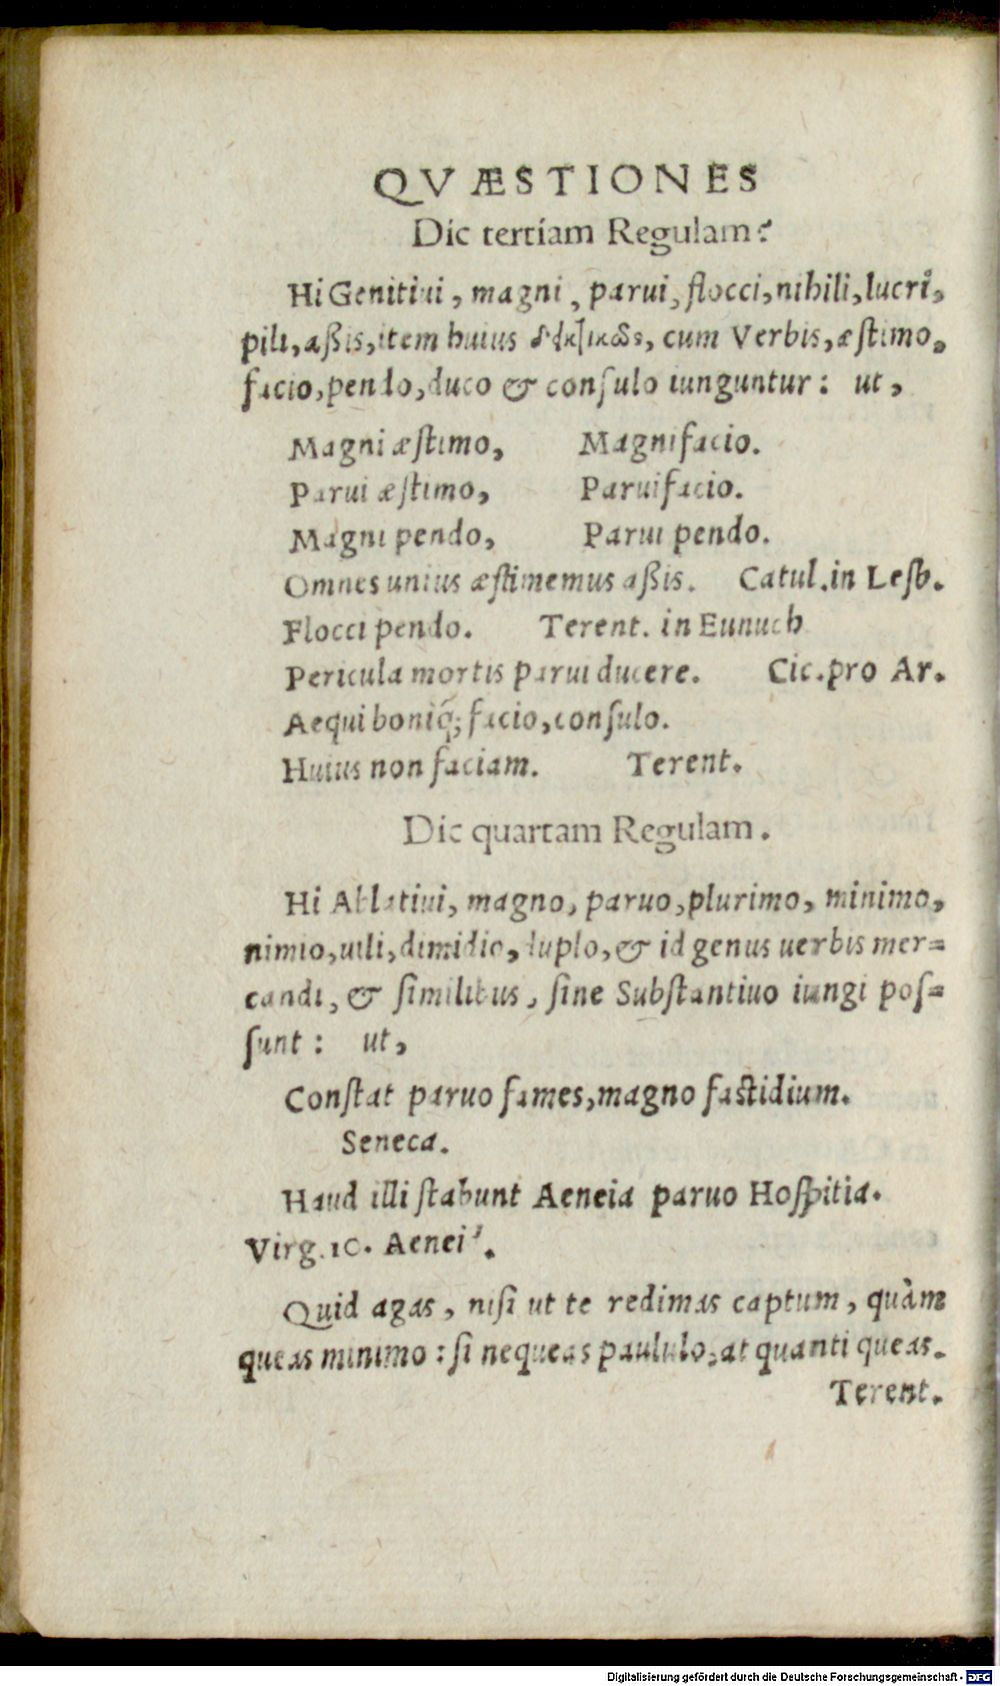 QVÆSTIONES
Dic tertiam Regulam?
Hi Genitiui, magni, parui, flocci, nihili, lucri,
pili, aßis, item huius δεικτικῶς, cum Verbis, æstimo,
facio, pendo, duco & consulo iunguntur: ut,
Magni æstimo, Magni facio.
Parui æstimo, Parui facio.
Magni pendo, Parui pendo.
Omnes unius æstimemus aßis. Catul. in Lesb.
Flocci pendo. Terent. in Eunuch
Pericula mortis parui ducere. Cic. pro Ar.
Aequi boniq́; facio, consulo.
Huius non faciam. Terent.
Dic quartam Regulam.
Hi Ablatiui, magno, paruo, plurimo, minimo,
nimio, uili, dimidio, duplo, & id genus uerbis mer=
candi, & similibus, sine Substantiuo iungi pos=
sunt: ut,
Constat paruo fames, magno fastidium.
Seneca.
Haud illi stabunt Aeneia paruo Hospitia.
Virg. 10. Aenei'.
Quid agas, nisi ut te redimas captum, quàm
queas minimo: si nequeas paululo, at quanti queas.
Terent.
Digitalisierung gefördert durch die Deutsche Forschungsgemeinschaft - DFG